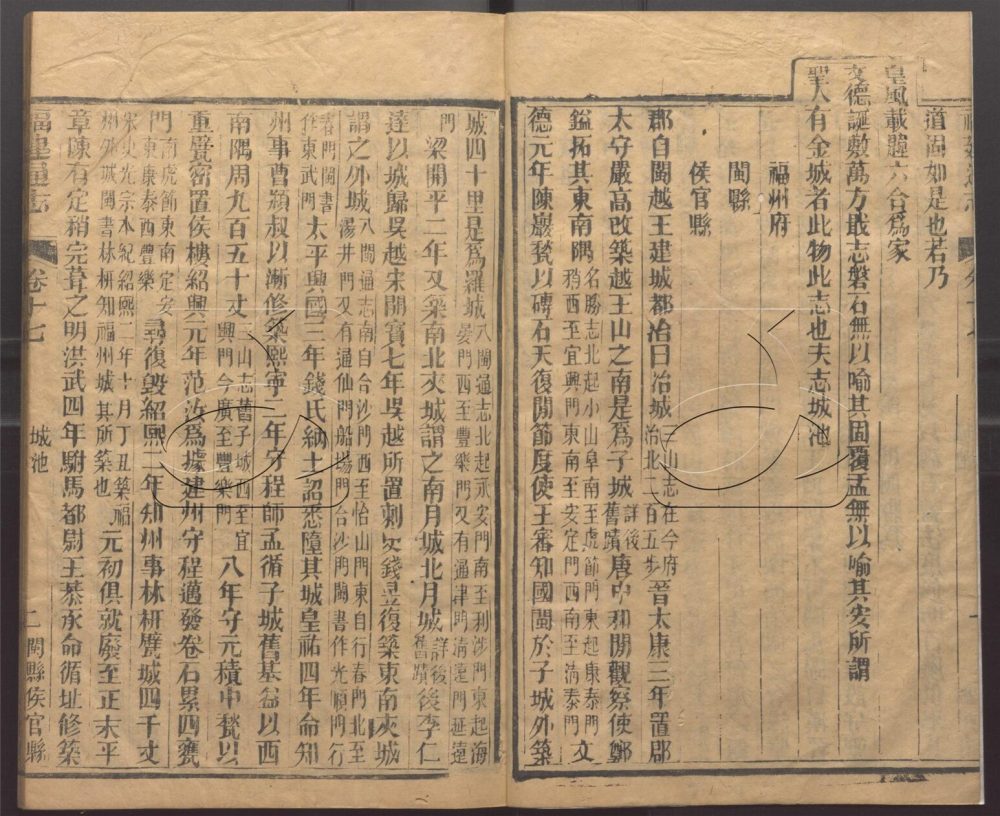 道固如是也若乃
皇風載韙六合爲家
文德誕敷萬方戢志磐石無以喻其固覆盂無以喻其安所謂
聖人有金城者此物此志也夫志城池
福州府
閩縣
侯官縣
郡自閩越王建城都治曰冶城三山志在今府治北二百五步晉太康三年置郡
太守嚴高改築越王山之南是爲子城詳後舊蹟唐中和間觀察使鄭
鎰拓其東南隅名勝志北起小山阜南至虎節門東起康泰門稍西至宜興門東南至安定門西南至淸泰門文
德元年陳巖甃以磚石天復間節度使王審知國閩於子城外築
城四十里是爲羅城八閩通志北起永安門南至利涉門東起海晏門西至豐樂門又有通津門淸遠門延遠
門梁開平二年又築南北夾城謂之南月城北月城詳後舊蹟後李仁
達以城歸吳越宋開寶七年吳越所置刺史錢昱復築東南夾城
謂之外城八閩通志南自合沙門西至怡山門東自行春門北至湯井門又有通仙門船場門合沙門閩書作光順門行
春門閩書作東武門太平興國三年錢氏納土詔悉隳其城皇祐四年命知
州事曹潁叔以漸修築熙寧二年守程師孟循子城舊基益以西
南隅周九百五十丈三山志舊子城西至宜興門今廣至豐樂門八年守元積中甃以
重甓密置侯樓紹興元年范汝爲據建州守程邁發卷石累四甕
門南虎節東南定安東康泰西豐樂尋復毀紹熙二年知州事林枅甓城四千丈
宋史光宗本紀紹熙二年十月丁丑築福州外城閩書林枅知福州城其所築也元初俱就廢至正末平
章陳有定稍完葺之明洪武四年駙馬都尉王恭承命循址修築
福建通志
卷十七
城池
二
閩縣侯官縣